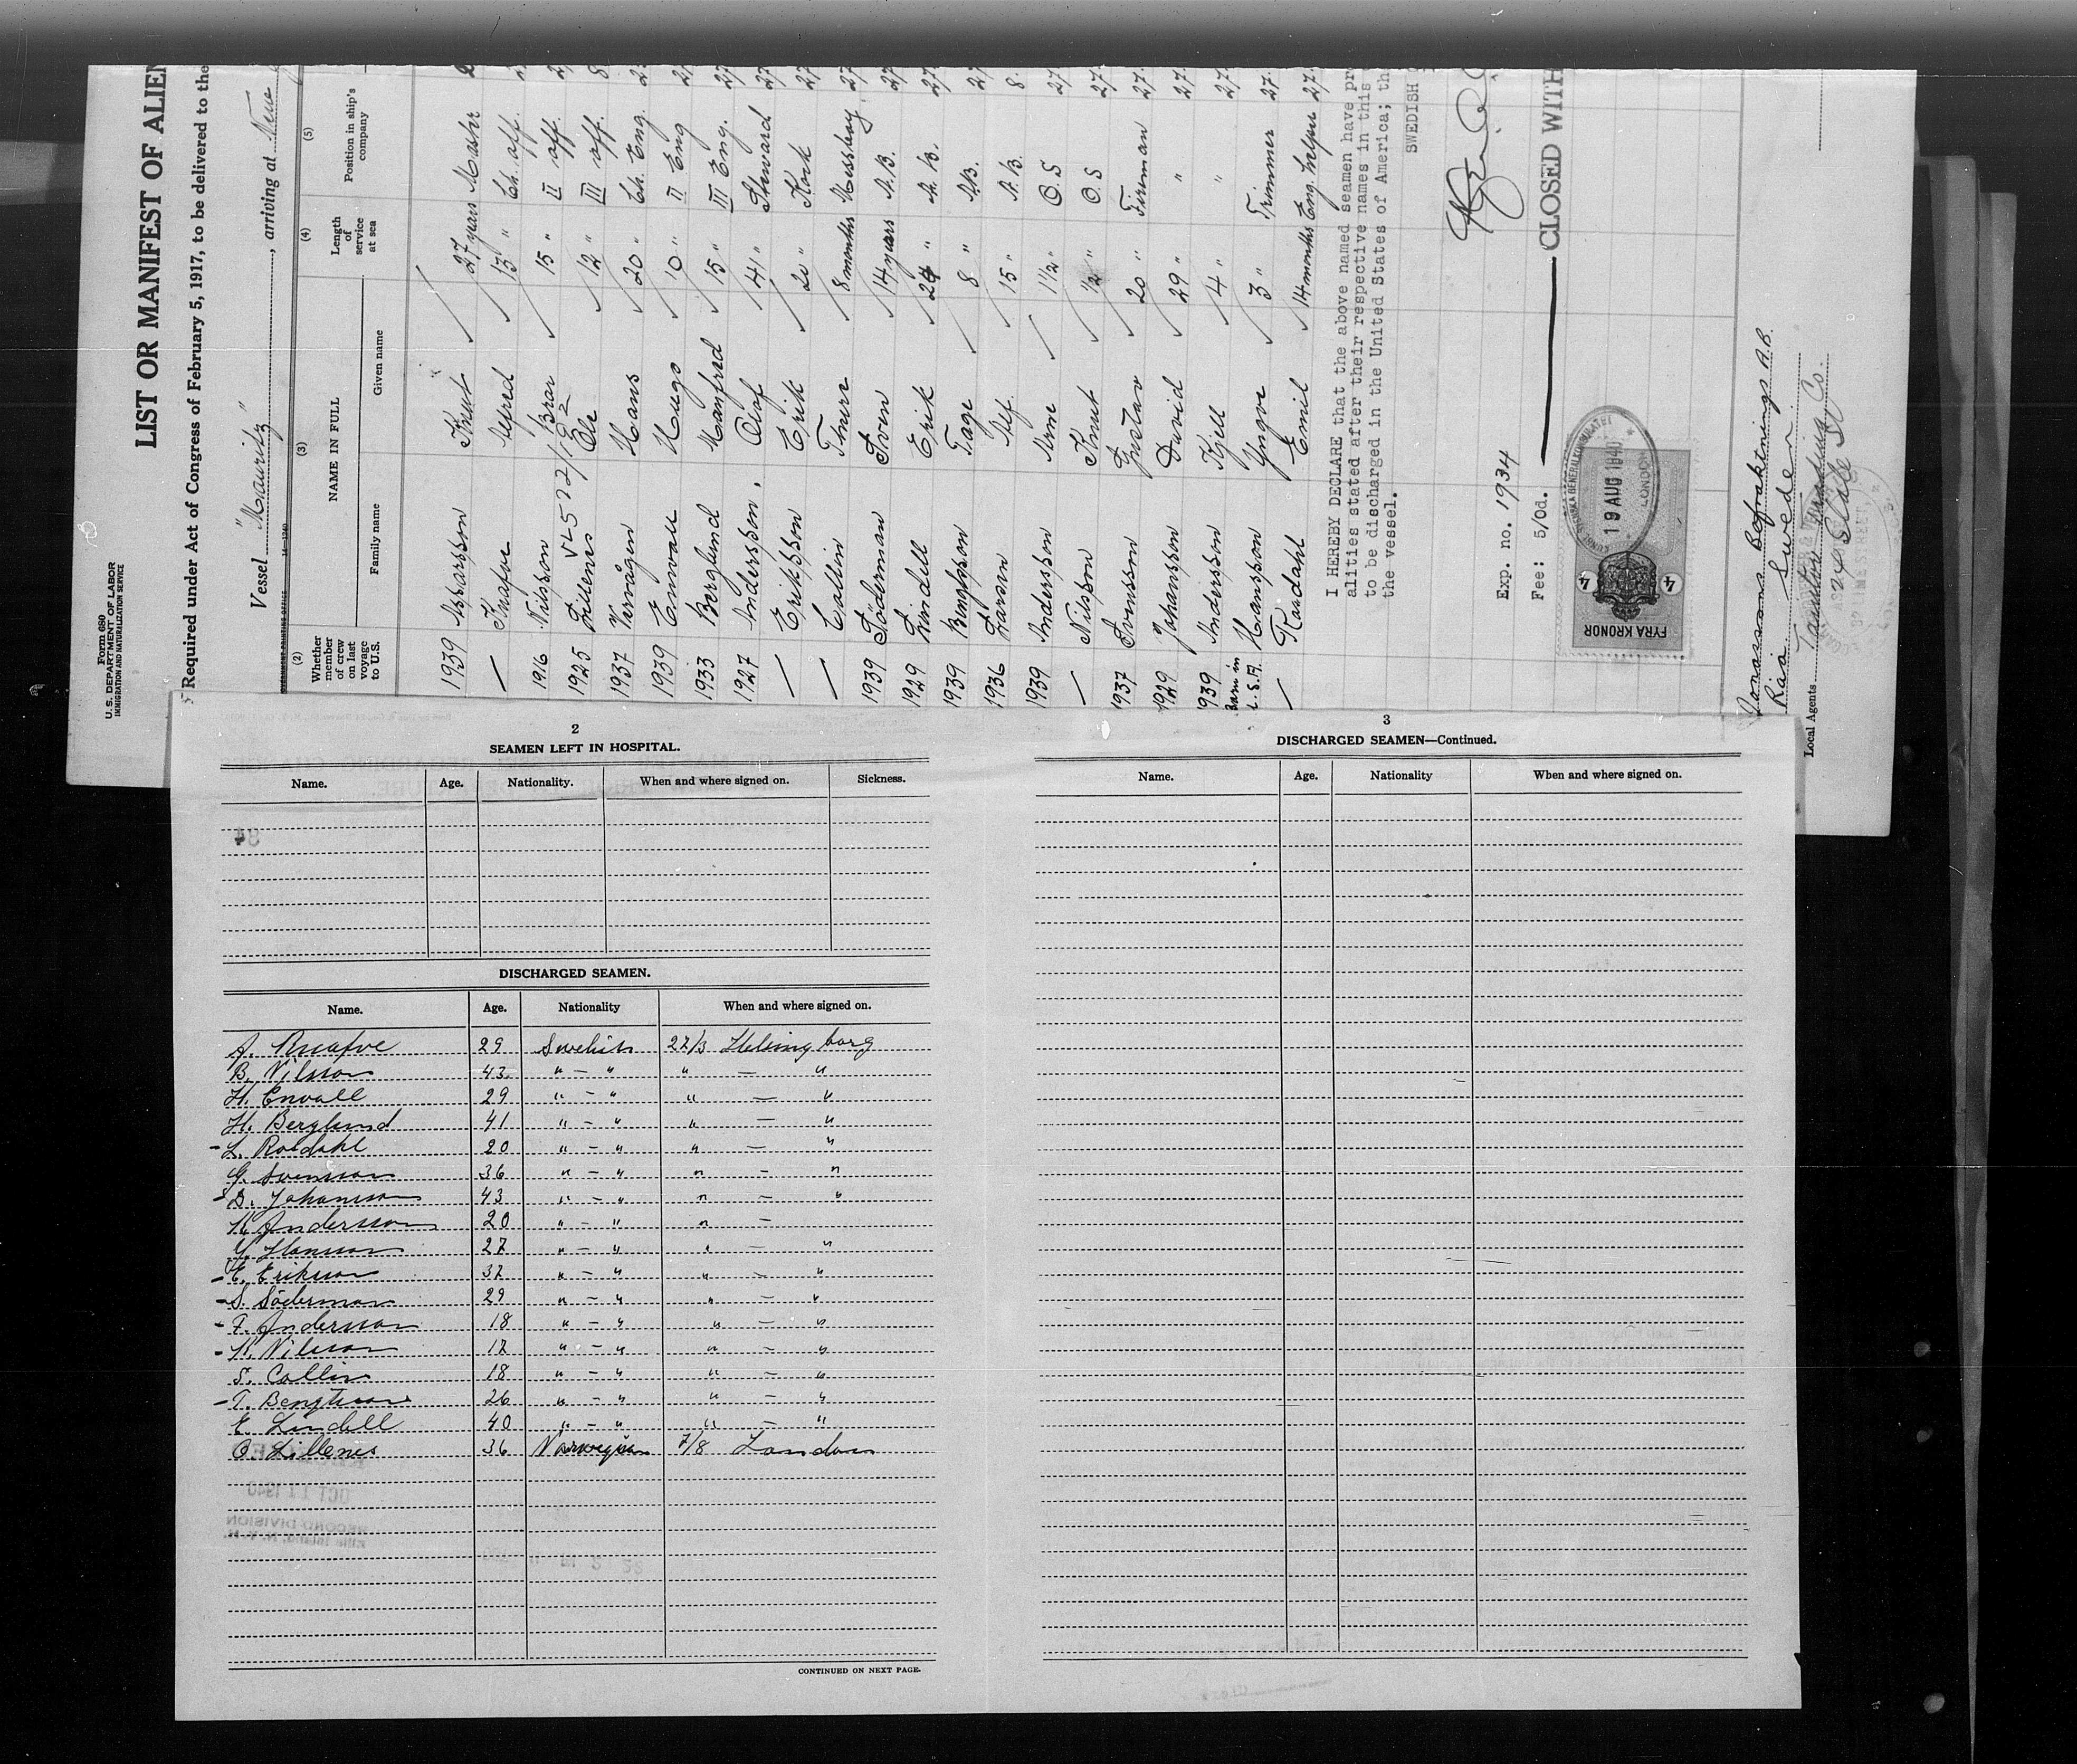 Form 680
U. S. DEPARTMENT OF LABOR
IMMIGRATION AND NATURALIZATION SERVICE
LIST OR MANIFEST OF ALIEN
Required under Act of Congress of February 5, 1917, to be delivered to the
Vessel "Mauritz", arriving at New
(2) (3) (4) (5)
Whether member of crew on last voyage to U.S.
NAME IN FULL
Family name Given name
Length of service at sea
Position in ship's company
1939 Asparsson Knut 27 years Mastr
— Knafve Alfred 13 " Ch. off.
1916 Nilsson Bror 15 " II off.
VL 522/182
1925 Lillenes Ole 12 " III off.
1937 Vernågen Hans 20 " Ch. Eng.
1939 Enwall Hugo 10 " II Eng
1933 Berglund Manfred 15 " III Eng.
1927 Andersson. Olof 41 " Steward
— Eriksson Erik 20 " Kock
— Callin Thure 8 months Messboy.
1939 Söderman Sven 14 years A.B.
1929 Lindell Erik 24 " A.B.
1939 Bengtsson Tage 8 " A.B.
1936 Larsen Alf 15 " A.B.
1939 Andersson Arne 1½ " O.S
— Nilsson Knut ½ " O.S
1937 Svensson Gustav 20 " Fireman
1929 Johansson David 29 " "
1939 Andersson Kjell 4 " "
Born in U.S.A. Hansson Yngve 3 " Trimmer
— Roxdahl Emil 14 months Eng. helper
I HEREBY DECLARE that the above named seamen have pr
alities stated after their respective names in this
to be discharged in the United States of America; th
the vessel.
SWEDISH
Exp. no. 1934
Fee: 5/0d.
CLOSED WITH
19 AUG 1940
LONDON
FYRA KRONOR
4 4
Jonasson Befraktnings A.B.
Råå Sweden
Local Agents
Trading Co.
24 State St
2
SEAMEN LEFT IN HOSPITAL.
Name. Age. Nationality. When and where signed on. Sickness.
DISCHARGED SEAMEN.
Name. Age. Nationality When and where signed on.
A. Knafve 29 Swehish 22/3 Helsingborg
B. Nilsson 43 " — " " — "
H. Envall 29 " — " " — "
H. Berglund 41 " — " " — "
- L. Roxdahl 20 " — " " — "
G. Svensson 36 " — " " — "
- D. Johansson 43 " — " " — "
K. Andersson 20 " — " " —
Y. Hansson 27 " — " " — "
- E. Eriksson 37 " — " " — "
- S. Söderman 29 " — " " — "
- F. Andersson 18 " — " " — "
- K. Nilsson 17 " — " " — "
T. Callin 18 " — " " — "
- T. Bengtsson 26 " — " " — "
E. Lindell 40 " — " " — "
O. Lillenes 36 Norwegian 7/8 London
CONTINUED ON NEXT PAGE.
3
DISCHARGED SEAMEN—Continued.
Name. Age. Nationality When and where signed on.